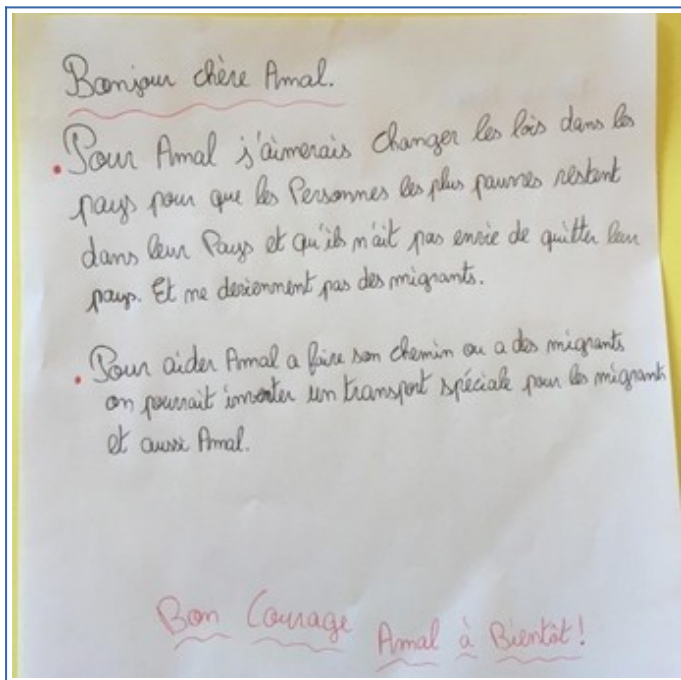 Bonjour chère Amal.
Pour Amal j'aimerais changer les lois dans les
pays pour que les Personnes les plus pauvres restent
dans leur Pays et qu'ils n'ait pas envie de quitter leur
pays. Et ne deviennent pas des migrants.
Pour aider Amal a faire son chemin ou a des migrants
on pourrait inventer un transport spéciale pour les migrants
et aussi Amal.
Bon Courage Amal à Bientôt!